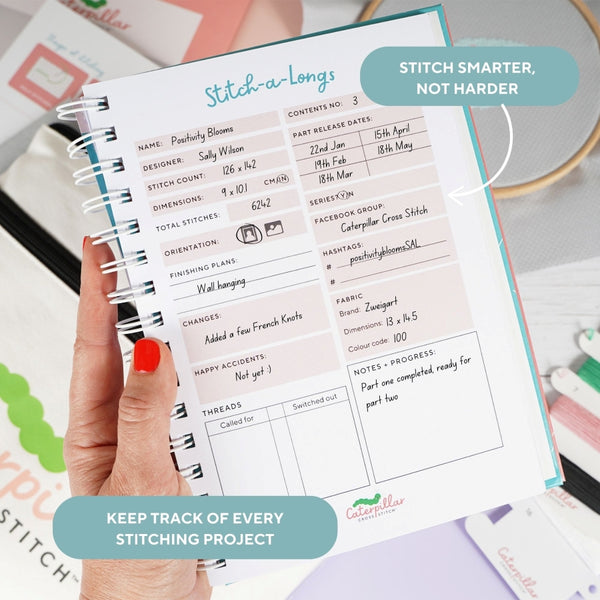 Caterpillar
CROSS STITCH
Stitch-a-Longs
STITCH SMARTER,
NOT HARDER
NAME: Positivity Blooms
DESIGNER: Sally Wilson
STITCH COUNT: 126 x 142
DIMENSIONS: 9 x 10.1 CM/IN
TOTAL STITCHES: 6242
ORIENTATION:
FINISHING PLANS:
Wall hanging
CHANGES:
Added a few French Knots
HAPPY ACCIDENTS:
Not yet :)
THREADS
Called for Switched out
CONTENTS NO: 3
PART RELEASE DATES:
22nd Jan 15th April
19th Feb 18th May
18th Mar
SERIES? Y/N
FACEBOOK GROUP:
Caterpillar Cross Stitch
HASHTAGS:
# positivitybloomsSAL
#
FABRIC
Brand: Zweigart
Dimensions: 13 x 14.5
Colour code: 100
NOTES + PROGRESS:
Part one completed, ready for
part two
Caterpillar
CROSS STITCH
KEEP TRACK OF EVERY
STITCHING PROJECT
STITCH™